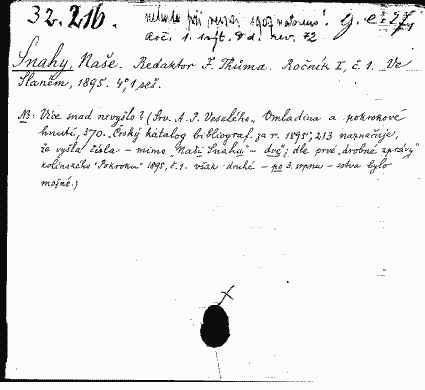 32.216.
nebude při revisi 1927 nalezeno!
Snahy, Naše. Redaktor F. Thůma. Ročník I, č. 1. Ve
Slaném, 1895. 4°, 1 seš.
NB: Více snad nevyšlo? (Srv. A. P. Veselého „Omladina a pokrokové
hnutí, 370. Český katalog bibliograf. za r. 1895, 213 naznačuje,
že vyšla čísla – mimo „Naši Snahu" – dvě"; dle prvé „drobné zprávy"
kolínského "Pokroku" 1895, č. 1. však druhé – po 3. srpnu – sotva bylo
možné.)